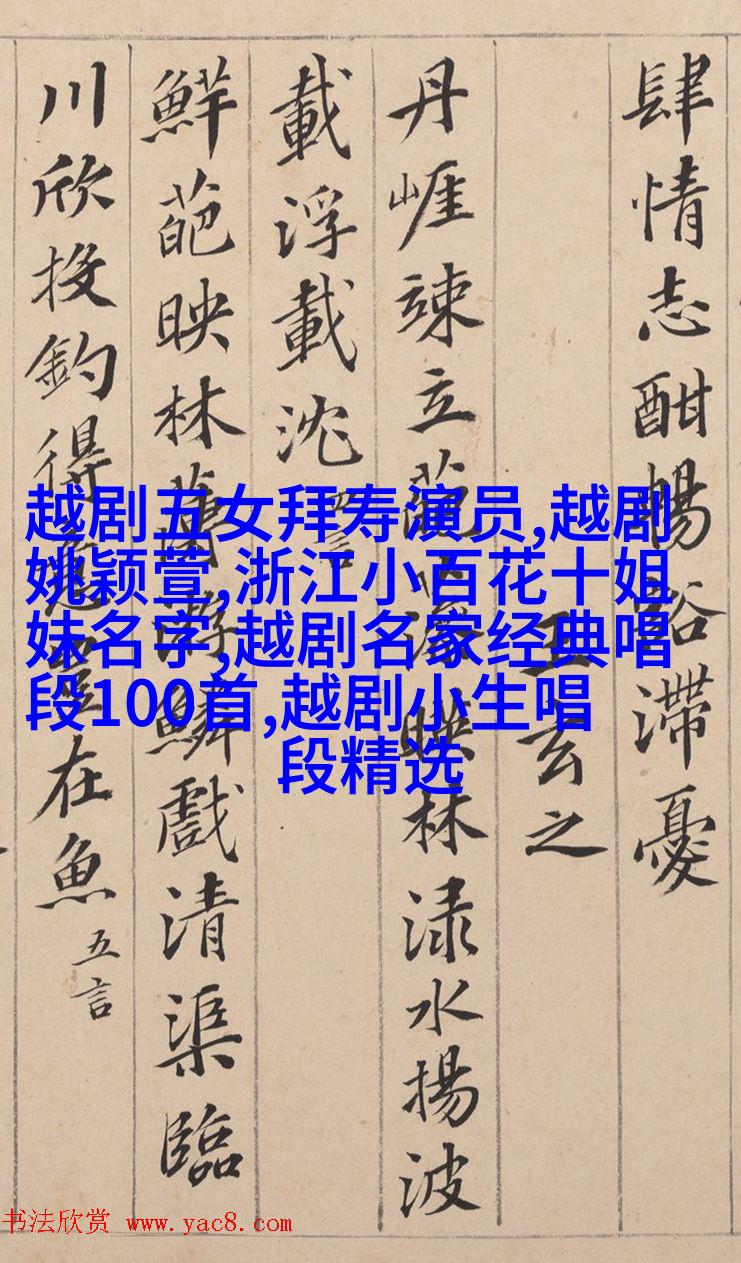 肆情志酣暢豁滯憂
王玄之
丹崕竦立葩藻映林渌水揚波
載浮載沈
鮮葩映林薄游鱗戲清渠臨
川欣投釣得意豈在魚 五言
越剧五女拜寿演员,越剧
姚颖萱,浙江小百花十姐
妹名字,越剧名家经典唱
段100首,越剧小生唱
段精选
书法欣赏 www.yac8.com